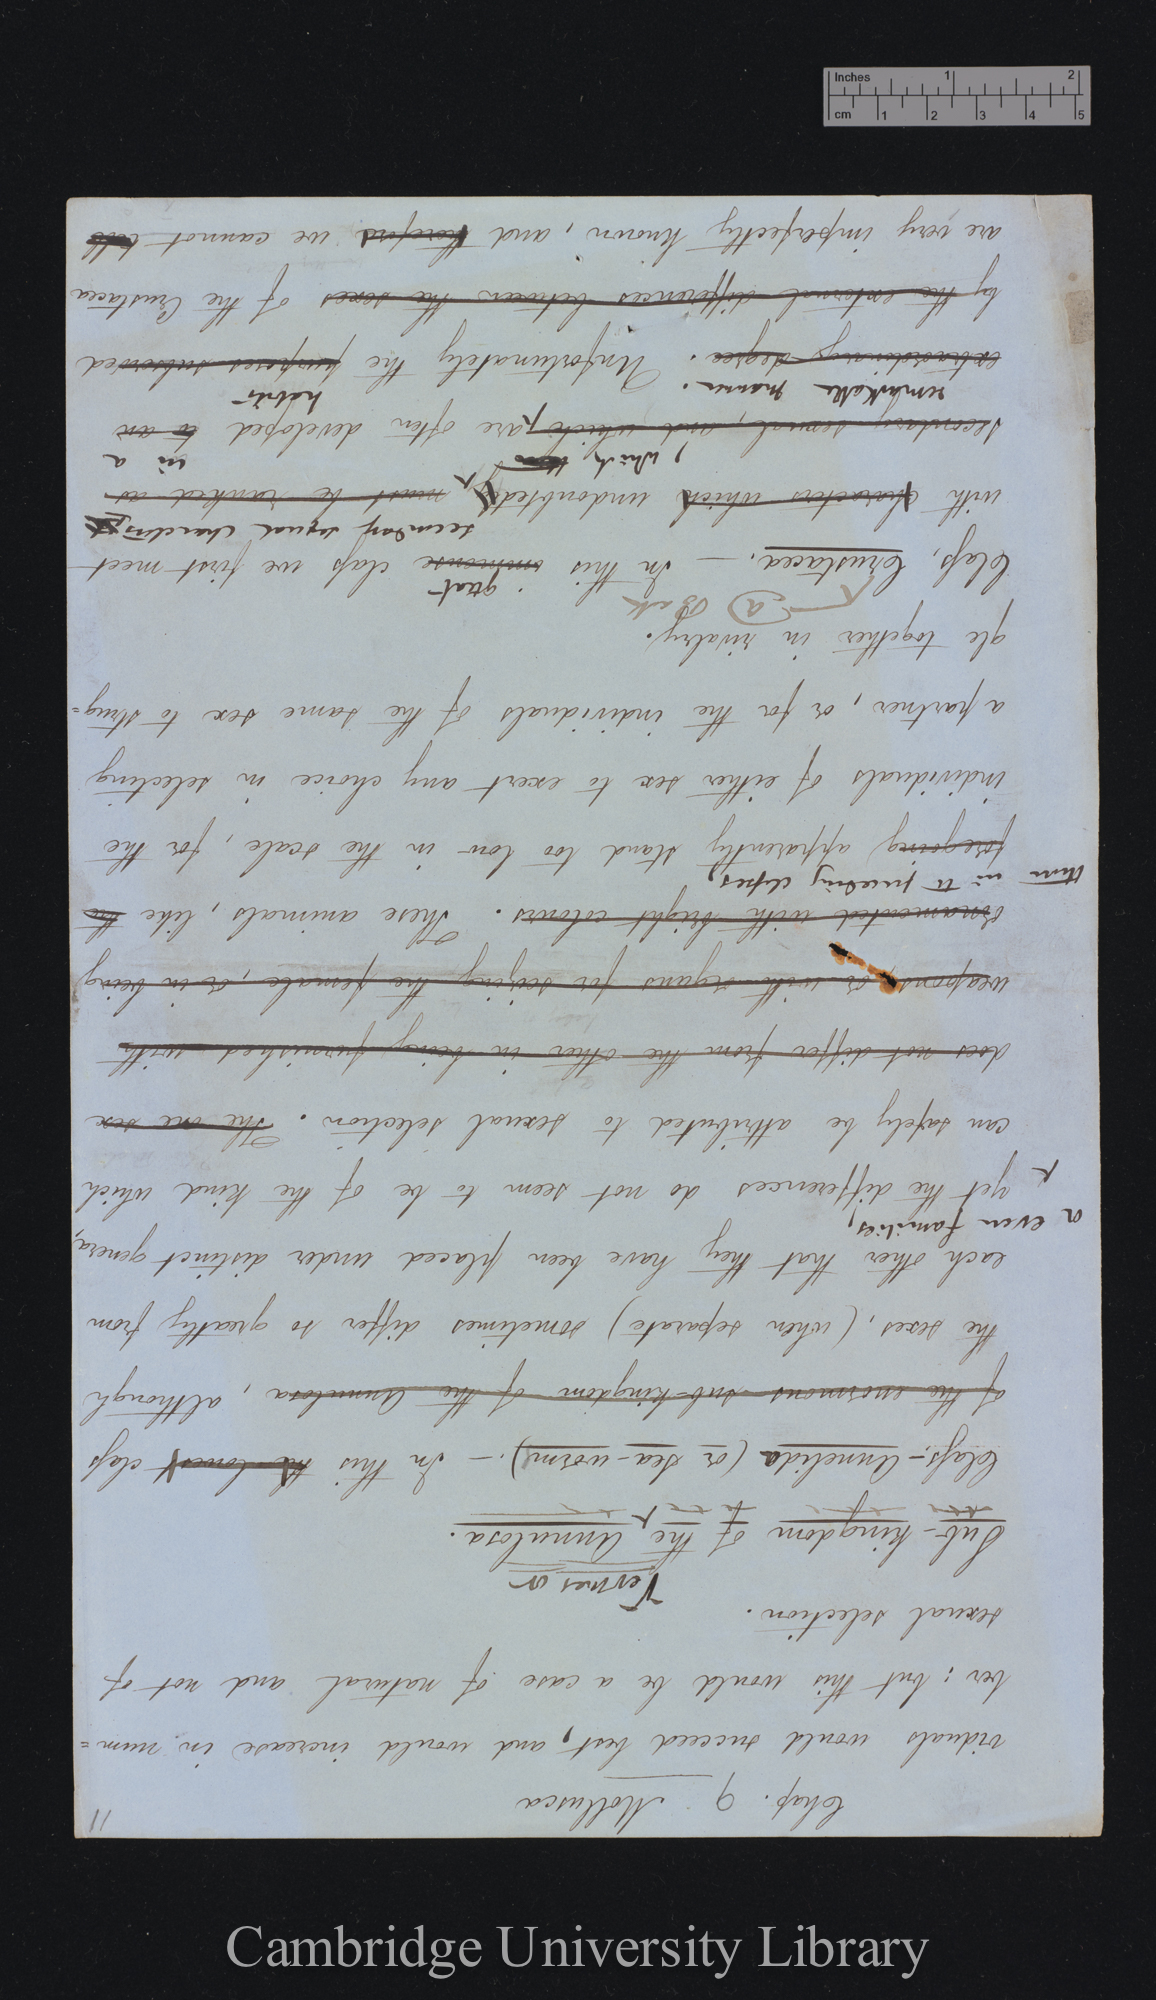 Inches 1 2
cm 1 2 3 4 5
11
Chap. 9 Mollusca
viduals would succeed best, and would increase in num=
ber; but this would be a case of natural and not of
sexual selection.
Vermes or
Sub-kingdom of the Annulosa.
Class-Annelida (or Sea-worms). — In this the lowest class
of the enormous sub-kingdom of the Annulosa, although
the sexes, (when separate) sometimes differ so greatly from
each other that they have been placed under distinct genera,
or even families,
yet the differences do not seem to be of the kind which
can safely be attributed to sexual selection. The one sex
does not differ from the other in being furnished with
weapons, or with organs for seizing the female, or in being
ornamented with bright colours. These animals, like the
them in the preceding classes,
foregoing apparently stand too low in the scale, for the
individuals of either sex to exert any choice in selecting
a partner, or for the individuals of the same sex to strug=
gle together in rivalry.
(a) Back
great
Class, Crustacea. — In this immense class we first meet
secondary sexual characters
with characters which undoubtedly must be ranked as
, which in a
secondary sexual, and which are often developed to an
remarkable manner. habits
extraordinary degree. Unfortunately the purposes subserved
by the external differences between the sexes of the Crustacea
are very imperfectly known, and therefore we cannot tell
Cambridge University Library